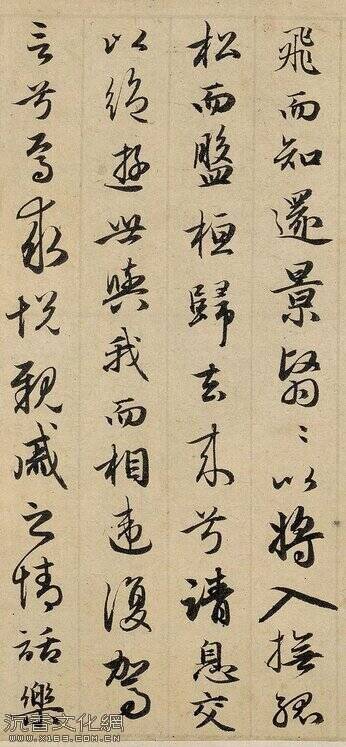 飛而知還景翳〻以將入撫孤
松而盤桓歸去來兮請息交
以絕遊世與我而相違復駕
言兮焉求悅親戚之情話樂
沉香文化網